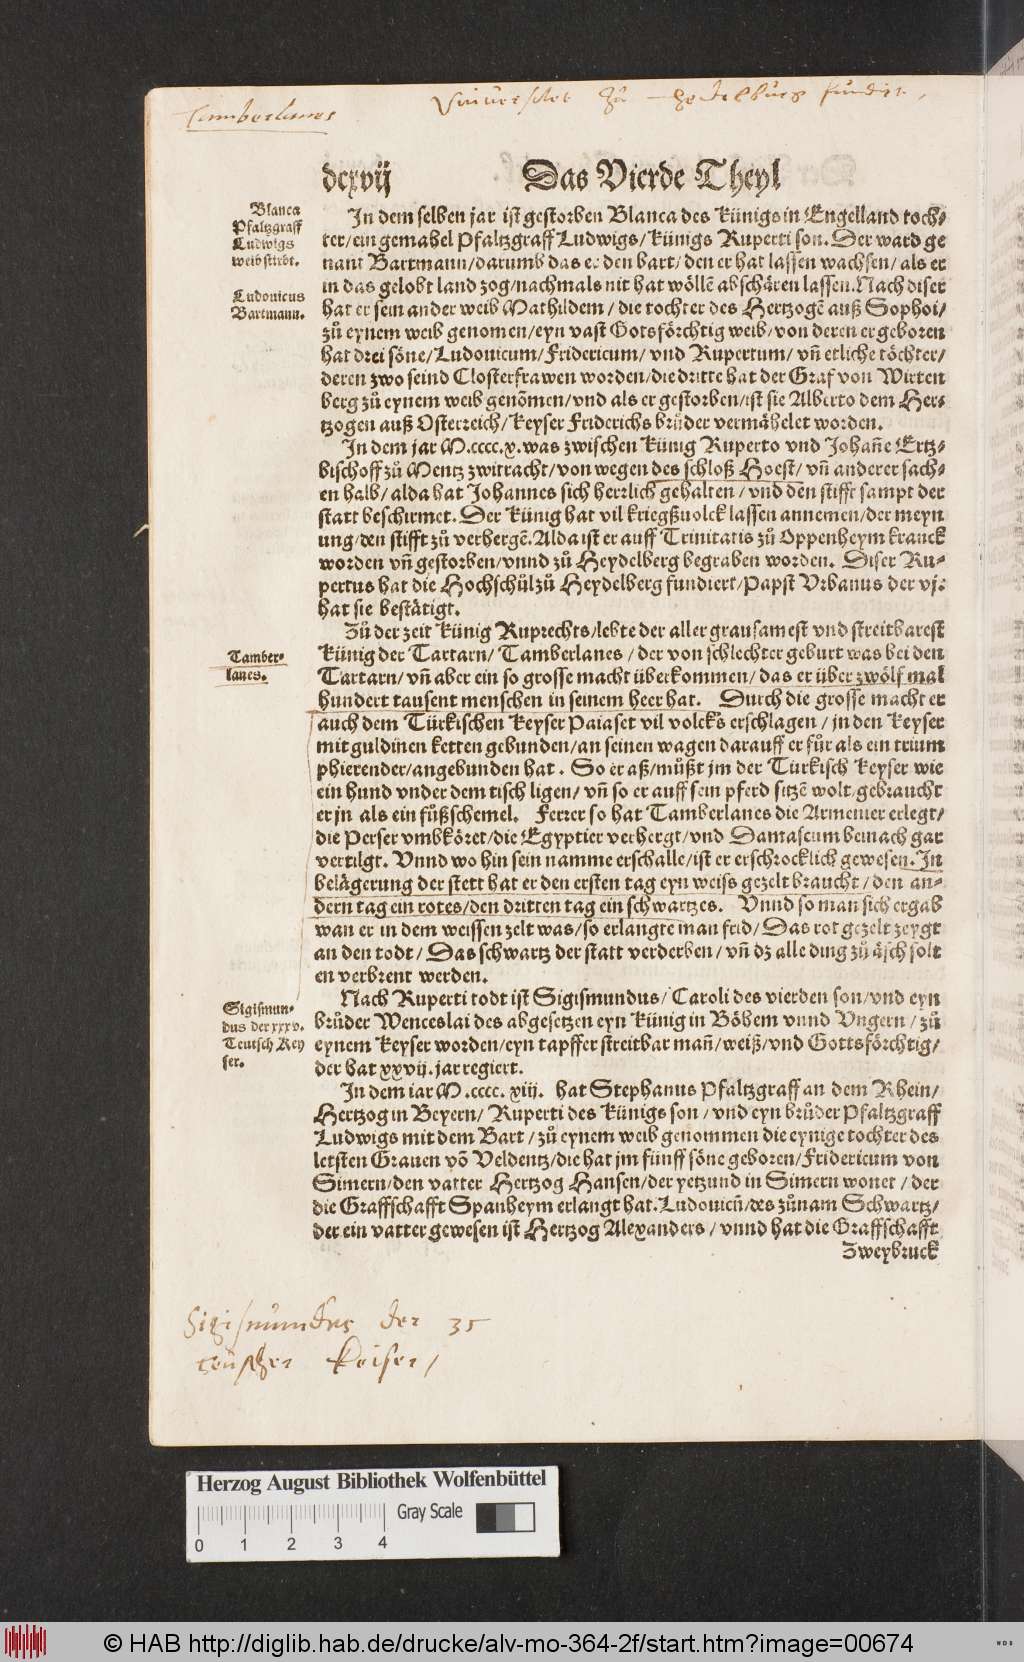 Tamberlanes
Vniuersitet zů Heydelburg fundirt,
dcxvij Das Vierde Theyl
Blanca
Pfaltzgraff
Ludwigs
weib stirbt.
Ludouicus
Bartmann.
In dem selben jar ist gestorben Blanca des künigs in Engelland toch⸗
ter/ ein gemahel Pfaltzgraff Ludwigs/ künigs Ruperti son. Der ward ge
nant Bartmann/ darumb das er den bart/ den er hat lassen wachsen/ als er
in das gelobt land zog/ nachmals nit hat wöllē abschären lassen. Nach diser
hat er sein ander weib Mathildem/ die tochter des Hertzogē auß Sophoi/
zů eynem weib genomen/ eyn vast Gotsförchtig weib/ von deren er geboren
hat drei söne/ Ludouicum/ Fridericum/ vnd Rupertum/ vñ etliche töchter/
deren zwo seind Closterfrawen worden/ die dritte hat der Graf von Wirten
berg zů eynem weib genōmen/ vnd als er gestorben/ ist sie Alberto dem Her⸗
tzogen auß Osterreich/ Keyser Friderichs brůder vermähelet worden.
In dem jar M.cccc.x. was zwischen künig Ruperto vnd Johañe Ertz⸗
bischoff zů Mentz zwitracht/ von wegen des schloß Hoest/ vñ anderer sach⸗
en halb/ alda hat Johannes sich herrlich gehalten/ vnd den stifft sampt der
statt beschirmet. Der künig hat vil kriegßuolck lassen annemen/ der meyn
ung/ den stifft zů verhergē. Alda ist er auff Trinitatis zů Oppenheym kranck
worden vñ gestorben/ vnnd zů Heydelberg begraben worden. Diser Ru⸗
pertus hat die Hochschůl zů Heydelberg fundiert/ Papst Vrbanus der vj.
hat sie bestätigt.
Tamber⸗
lanes.
Zů der zeit künig Ruprechts/ lebte der aller grausamest vnd streitbarest
künig der Tartarn/ Tamberlanes/ der von schlechter geburt was bei den
Tartarn/ vñ aber ein so grosse macht überkommen/ das er über zwölf mal
hundert tausent menschen in seinem heer hat. Durch die grosse macht er
auch dem Türkischen keyser Paiaset vil volcks erschlagen/ jn den keyser
mit guldinen ketten gebunden/ an seinen wagen darauff er fůr als ein trium
phierender/ angebunden hat. So er aß/ můßt jm der Türkisch keyser wie
ein hund vnder dem tisch ligen/ vñ so er auff sein pferd sitzē wolt/ gebraucht
er jn als ein fůßschemel. Ferrer so hat Tamberlanes die Armenier erlegt/
die Perser vmbköret/ die Egyptier verhergt/ vnd Damascum beinach gar
vertilgt. Vnnd wo hin sein namme erschalle/ ist er erschrocklich gewesen. In
belägerung der stett hat er den ersten tag eyn weiss gezelt braucht/ den an⸗
dern tag ein rotes/ den dritten tag ein schwartzes. Vnnd so man sich ergab
wan er in dem weissen zelt was/ so erlangte man frid/ Das rot gezelt zeygt
an den todt/ Das schwartz der statt verderben/ vñ dz alle ding zů äsch solt
en verbrent werden.
Sigismun⸗
dus der xxxv.
Teutsch Key
ser.
Nach Ruperti todt ist Sigismundus/ Caroli des vierden son/ vnd eyn
brůder Wenceslai des abgesetzen eyn künig in Böhem vnnd Vngern/ zů
eynem keyser worden/ eyn tapffer streitbar mañ/ weiß/ vnd Gottsförchtig/
der hat xxvij. jar regiert.
In dem iar M.cccc. xiij. hat Stephanus Pfaltzgraff an dem Rhein/
Hertzog in Beyern/ Ruperti des künigs son/ vnd eyn brůder Pfaltzgraff
Ludwigs mit dem Bart/ zů eynem weib genommen die eynige tochter des
letsten Grauen vō Veldentz/ die hat jm fünff söne geboren/ Fridericum von
Simern/ den vatter Hertzog Hansen/ der yetzund in Simern wonet/ der
die Graffschafft Spanheym erlangt hat. Ludouicū/ des zůnam Schwartz/
der ein vatter gewesen ist Hertzog Alexanders/ vnnd hat die Graffschafft
Zweybruck
Sigismundus der 35
teutscher keiser/
Herzog August Bibliothek Wolfenbüttel
Gray Scale
0 1 2 3 4
© HAB http://diglib.hab.de/drucke/alv-mo-364-2f/start.htm?image=00674